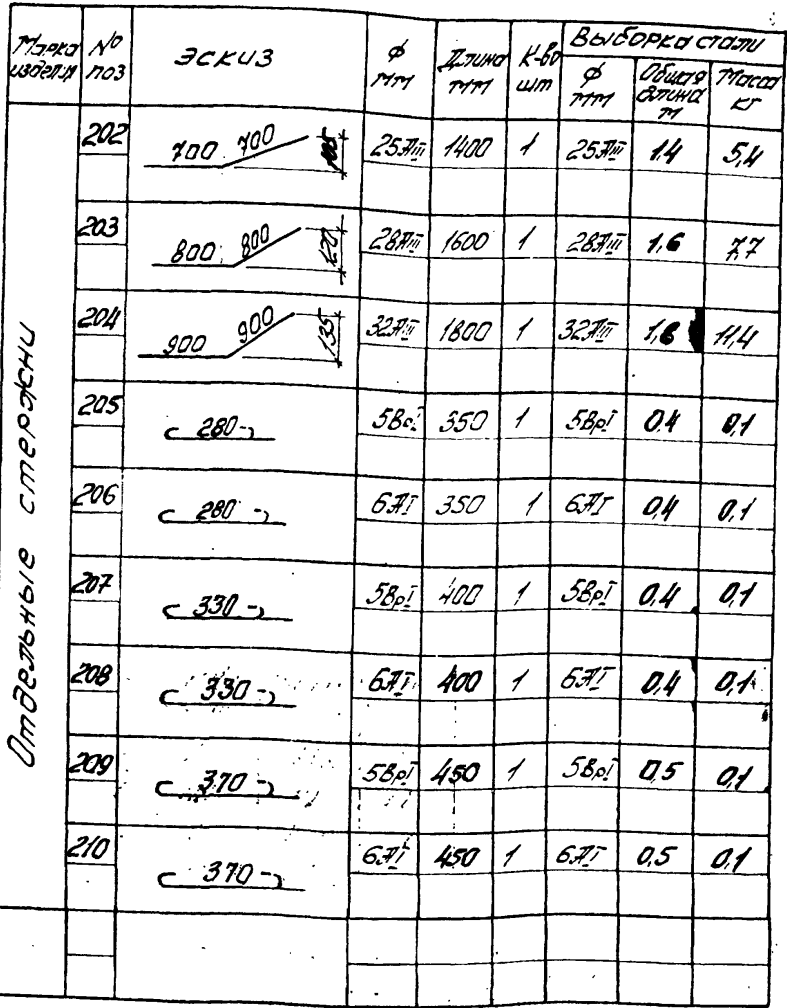 Марка изделия № поз Эскиз ф мм Длина мм К-во шт Выборка стали
ф мм Общая длина м Масса кг
Отдельные стержни
202 700 700 105 25АIII 1400 1 25АIII 1.4 5,4
203 800 800 120 28АIII 1600 1 28АIII 1.6 7,7
204 900 900 135 32АIII 1800 1 32АIII 1,8 11,4
205 280 5ВрI 350 1 5ВрI 0,4 0,1
206 280 6АI 350 1 6АI 0,4 0,1
207 330 5ВрI 400 1 5ВрI 0,4 0,1
208 330 6АI 400 1 6АI 0,4 0,1
209 370 5ВрI 450 1 5ВрI 0,5 0,1
210 370 6АI 450 1 6АI 0,5 0,1